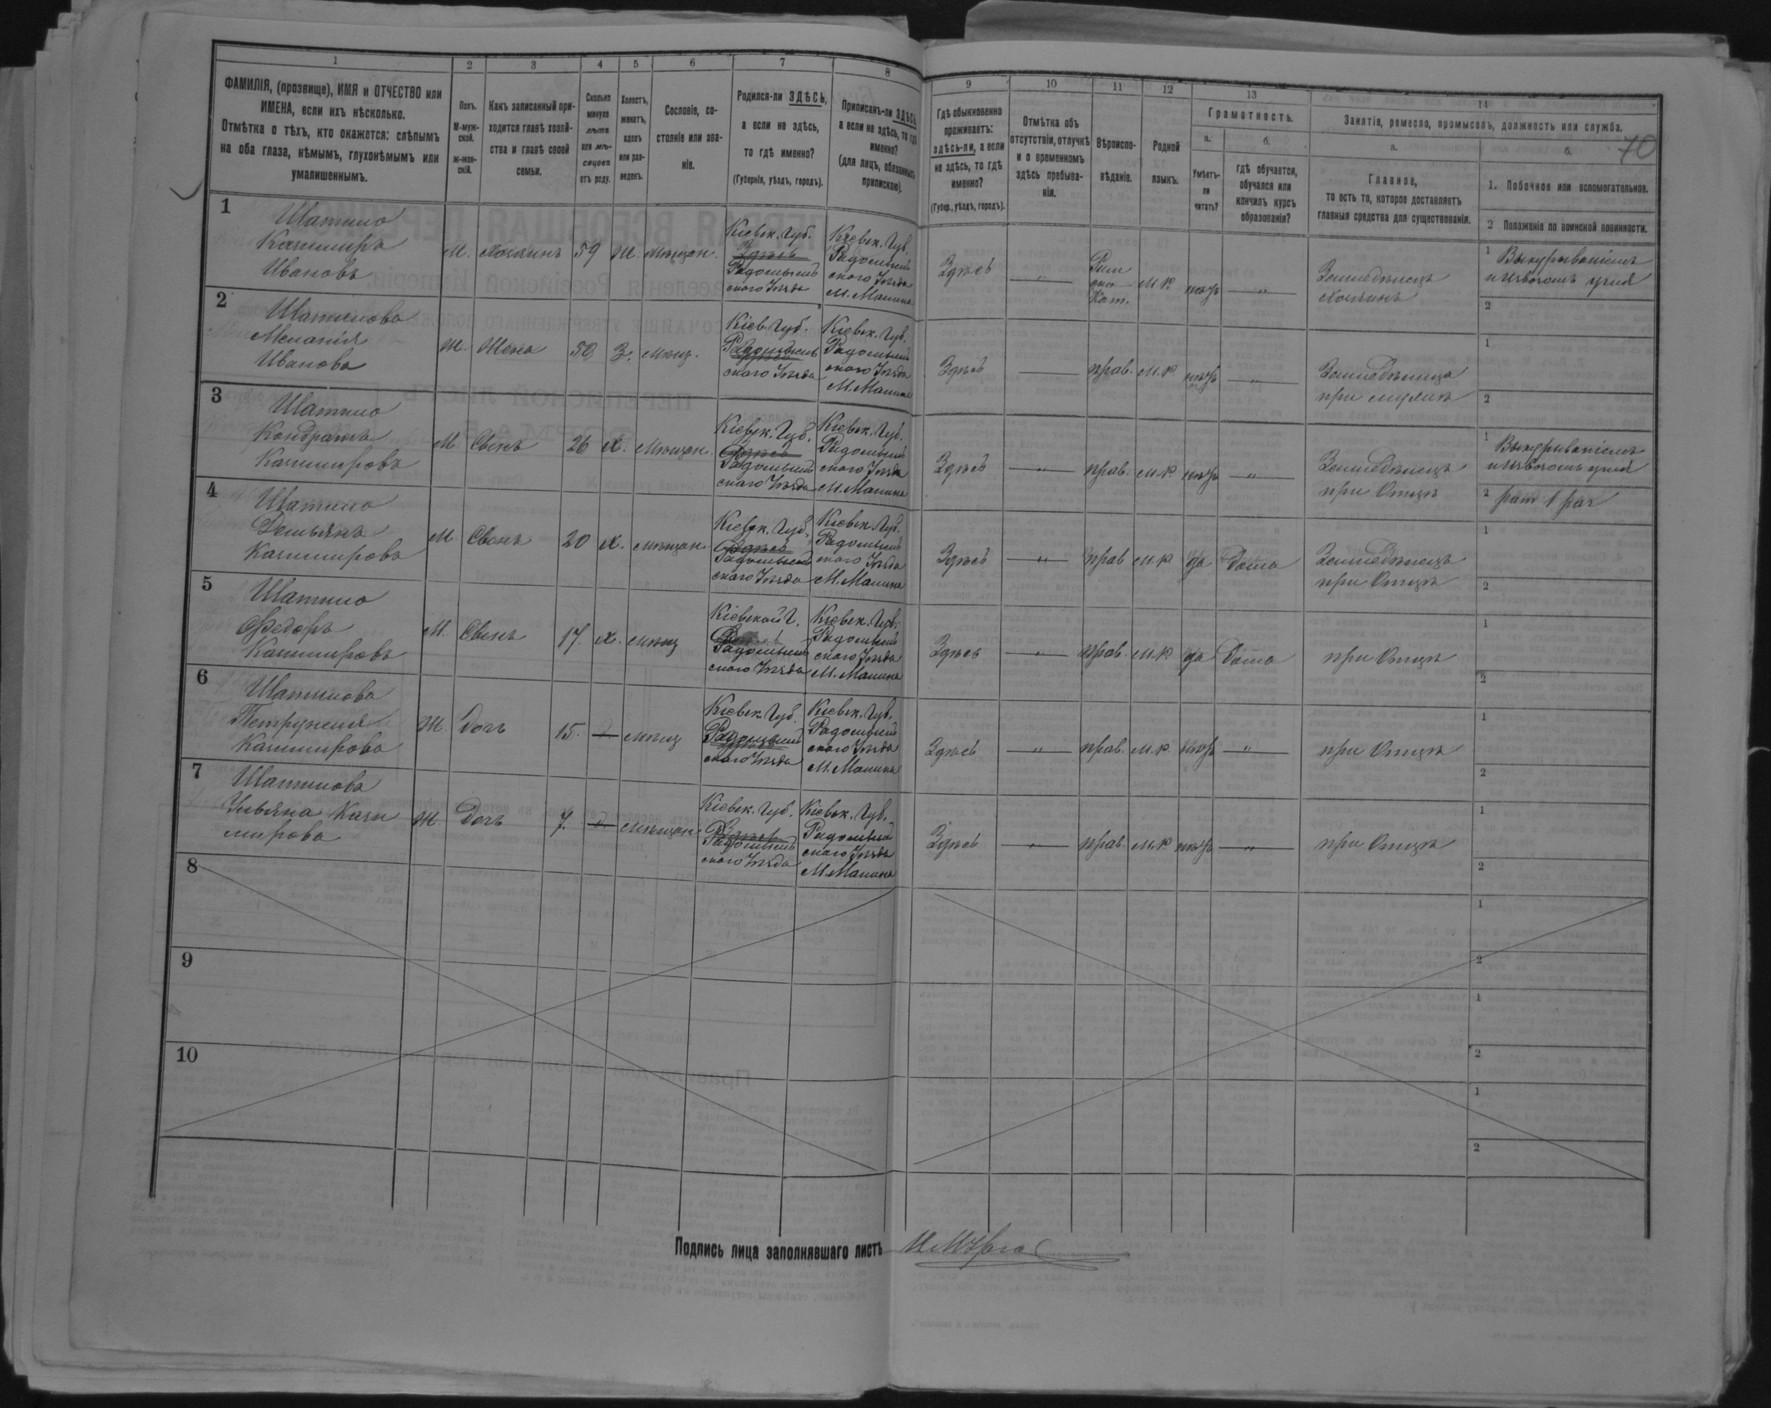 1
2
3
4
5
6
7
8
ФАМИЛІЯ, (прозвище), ИМЯ и ОТЧЕСТВО или
ИМЕНА, если ихъ нѣсколько.
Отмѣтка о тѣхъ, кто окажется: слѣпымъ
на оба глаза, нѣмымъ, глухонѣмымъ или
умалишеннымъ.
Полъ.
М-муж-
ской.
ж-жен-
скій.
Какъ записанный при-
ходится главѣ хозяй-
ства и главѣ своей
семьи.
Сколько
минуло
лѣтъ
или мѣ-
сяцевъ
отъ роду.
Холостъ,
женатъ,
вдовъ
или раз-
веденъ.
Сословіе, со-
стояніе или зва-
ніе.
Родился-ли ЗДѢСЬ,
а если не здѣсь,
то гдѣ именно?
(Губернія, уѣздъ, городъ).
Приписанъ-ли ЗДѢСЬ,
а если не здѣсь, то гдѣ
именно?
(для лицъ, обязанныхъ
припискою).
9
10
11
12
13
14
Гдѣ обыкновенно
проживаетъ:
здѣсь-ли, а если
не здѣсь, то гдѣ
именно?
(Губер., уѣздъ, городъ).
Отмѣтка объ
отсутствіи, отлучкѣ
и о временномъ
здѣсь пребыва-
ніи.
Вѣроиспо-
вѣданіе.
Родной
языкъ.
Грамотность.
а.
б.
Умѣетъ-
ли
читать?
гдѣ обучается,
обучался или
кончилъ курсъ
образованія?
Занятіе, ремесло, промыселъ, должность или служба.
а.
б.
70
Главное,
то есть то, которое доставляетъ
главныя средства для существованія.
1. Побочное или вспомогательное.
2 Положеніе по воинской повинности.
1
Шатило
Казимиръ
Ивановъ
М. Хозяинъ 59 Ж. мѣщан.
Кіевск. Губ.
Здѣсь
Радомысль
скаго Уѣзда
Кіевск. Губ.
Радомысль
скаго Уѣзда
М. Малина
Здѣсь
Рим
ско
Кат.
м. р. негр
Земледѣлецъ
Хозяинъ
1 Выкуриваніемъ
и извозомъ угля
2
2
Шатилова
Меланія
Иванова
Ж. Жена 50 З. мѣщ.
Кіев. Губ.
Радомысль
скаго Уѣзда
Кіевск. Губ.
Радомысль
скаго Уѣзда
М. Малина
Здѣсь прав. м. р негр
Земледѣлица
при мужѣ
1
2
3
Шатило
Кондратъ
Казимировъ
М Сынъ 26 Х. мѣщан.
Кіевск. Губ.
Здѣсь
Радомысль
скаго Уѣзда
Кіевск. Губ.
Радомысль
скаго Уѣзда
М. Малина
Здѣсь прав. м. р негр
Земледѣлецъ
при Отцѣ
1 Выкуриваніемъ
и извозомъ угля
2 рат 1 раз
4
Шатило
Демьянъ
Казимировъ
М Сынъ 20 Х. мѣщан.
Кіевск. Губ.
Здѣсь
Радомысль
скаго Уѣзда
Кіевск. Губ.
Радомысль
скаго Уѣзда
М. Малина
Здѣсь прав м. р да Дома
Земледѣлецъ
при Отцѣ
1
2
5
Шатило
Федоръ
Казимировъ
М. Сынъ 17. Х. мѣщ
Кіевской Г.
Радомысль
скаго Уѣзда
Кіевск. Губ.
Радомысль
скаго Уѣзда
М. Малина
Здѣсь прав. м. р да Дома
при Отцѣ
1
2
6
Шатилова
Петрунеля
Казимирова
Ж. Дочь 15. мѣщ
Кіевск. Губ.
Радомысль
скаго Уѣзда
Кіевск. Губ.
Радомысль
скаго Уѣзда
М. Малина
Здѣсь прав. м. р негр
при Отцѣ
1
2
7
Шатилова
Ульяна Кази
мирова
Ж. Дочь 7. мѣщан.
Кіевск. Губ.
Здѣсь
Радомысль
скаго Уѣзда
Кіевск. Губ.
Радомысль
скаго Уѣзда
М. Малина
Здѣсь прав. м. р негр
при Отцѣ
1
2
8
1
2
9
1
2
10
1
2
Подпись лица заполнявшаго листъ